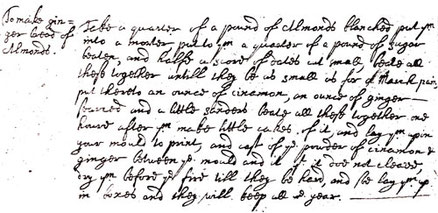 To make gin=
zer bread of
Almonds.
Take a quarter of a pound of Almonds blanched put ym
into a morter put to ym a quarter of a pound of sugar
beaten, and halfe a score of dates cut small beate all
these together untill they be as small as for a March pan
put thereto an ounce of cinamon, an ounce of ginger
searced and a little sanders beate all these together one
houre after ym make little cakes of it, and lay ym upon
your mould to print, and cast of ye powder of cinamon &
ginger between ye mould and it yt it doe not cleave
dry ym before ye fire till they be hard, and so lay ym up
in boxes and they will keep all ye year.